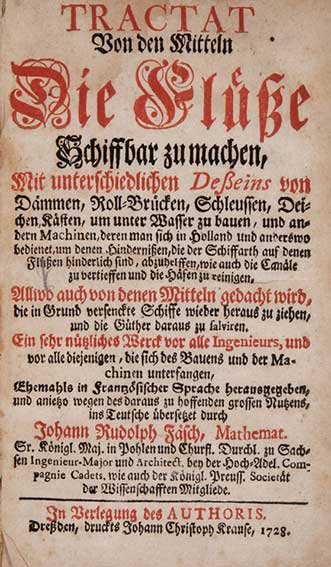 TRACTAT
Von den Mitteln
Die Flüße
Schiffbar zu machen,
Mit unterschiedlichen Deßeins von
Dämmen, Roll-Brücken, Schleussen, Dei-
chen, Kästen, um unter Wasser zu bauen, und an-
dern Machinen, deren man sich in Holland und anderswo
bedienet, um denen Hindernißen, die der Schiffarth auf denen
Flüßen hinderlich sind, abzuhelffen, wie auch die Canäle
zu vertieffen und die Häfen zu reinigen,
Allwo auch von denen Mitteln gedacht wird,
die in Grund versenckte Schiffe wieder heraus zu ziehen,
und die Güther daraus zu salviren.
Ein sehr nützliches Werck vor alle Ingenieurs, und
vor alle diejenigen, die sich des Bauens und der Ma-
chinen unterfangen,
Ehemahls in Frantzösischer Sprache herausgegeben,
und anietzo wegen des daraus zu hoffenden grossen Nutzens,
ins Teutsche übersetzet durch
Johann Rudolph Fäsch, Mathemat.
Sr. Königl. Maj. in Pohlen und Churfl. Durchl. zu Sach-
sen Ingenieur-Major und Architect. bey der Hoch-Adel. Com-
pagnie Cadets, wie auch der Königl. Preuss. Societät
der Wissenschafften Mitgliede.
In Verlegung des AUTHORIS.
Dreßden, druckts Johann Christoph Krause, 1728.